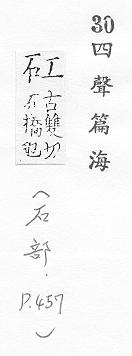 30四聲篇海
矼古雙切
石橋也
（石部．
P.457
）